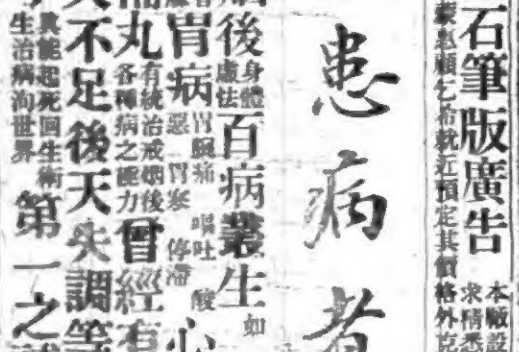 石筆版廣告 本廠設
蒙惠顧乞希就近預定其價格外克 求精悉
患病者
後身體虛怯百病叢生如
胃病惡 胃寒 嘔吐 停滯 酸 心
丸有統治戒烟後各種病之極力曾經有
不足後天失調等
具能起死回生術生治病洵世界第一之